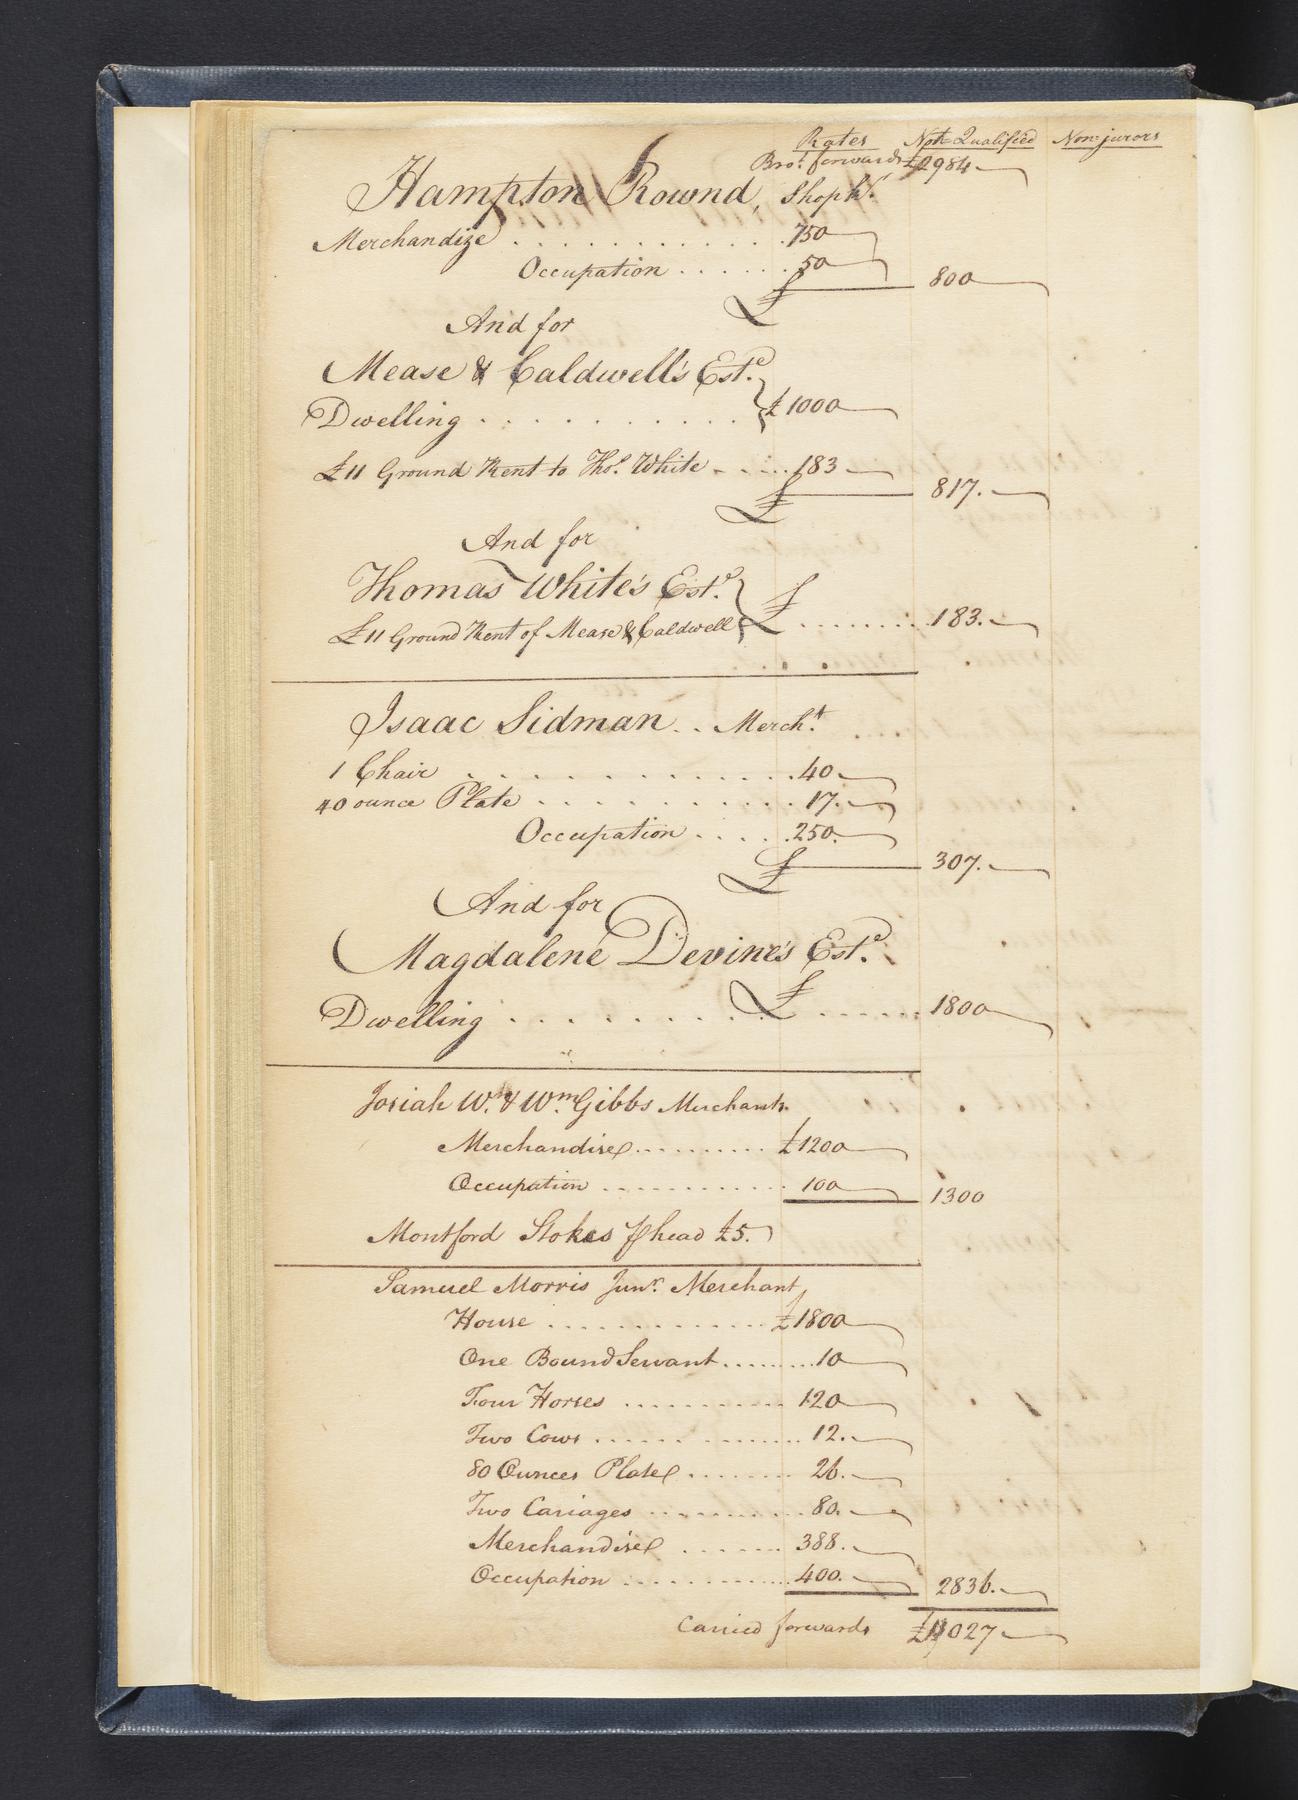 6
Rates Not Qualified Non-jurors
Bro.t forwards £2984
Hampton Rownd, Shopkr.
Merchandize . . . . . . . . . . . 750
Occupation . . . . . 50
£ 800
And for
Mease & Caldwell's Est.e
Dwelling . . . . . . . . . . £1000
£11 Ground Rent to Thos. White . . . . 183
£ 817.
And for
Thomas White's Est.e
£11 Ground Rent of Mease & Caldwell £ . . . . . . . . 183.
Isaac Sidman . . Mercht.
1 Chair . . . . . . . . . . . . . 40
40 ounce Plate . . . . . . . . . . . 17.
Occupation . . . . . 250.
£ 307.
And for
Magdalene Devine's Est.e
Dwelling . . . . . . . . £ . . . . . . 1800
Josiah W.h & Wm. Gibbs Merchants.
Merchandise . . . . . . . . . . £1200
Occupation . . . . . . . . . . . . 100 1300
Montford Stokes P head £5.
Samuel Morris Junr. Merchant
House . . . . . . . . . . . . . £1800
One Bound Servant . . . . . . . . . 10
Four Horses . . . . . . . . . . . 120
Two Cows . . . . . . . . . . . . . . 12.
80 Ounces Plate . . . . . . . . 26.
Two Cariages . . . . . . . . . . . . 80.
Merchandise . . . . . . . 388.
Occupation . . . . . . . . . . . . . 400. 2836.
Carried forwards £11027